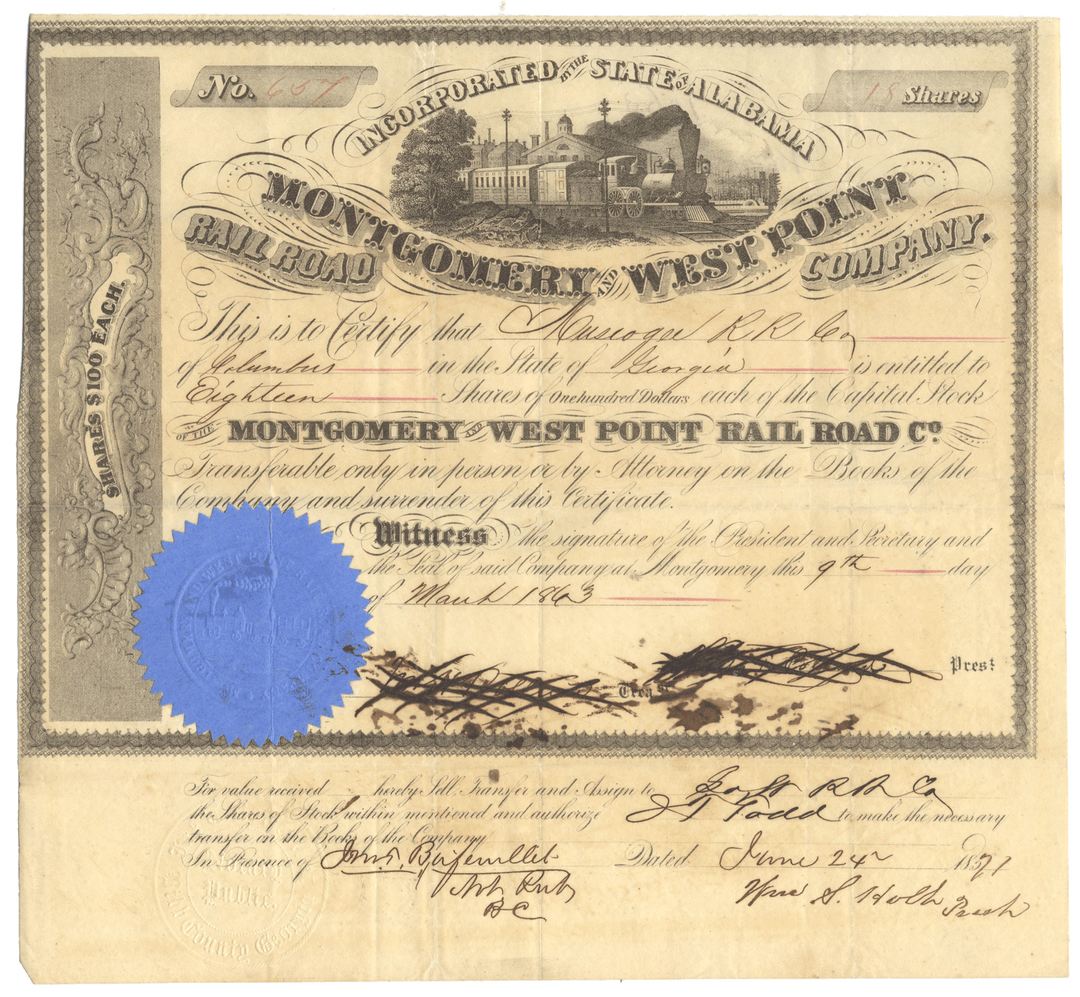 No. 657
18 Shares
INCORPORATED BY THE STATE OF ALABAMA
MONTGOMERY AND WEST POINT
RAIL ROAD COMPANY.
SHARES $100 EACH.
This is to Certify that Muscogee R R Co
of Columbus in the State of Georgia is entitled to
Eighteen Shares of One hundred Dollars each of the Capital Stock
OF THE MONTGOMERY AND WEST POINT RAIL ROAD Co.
Transferable only in person or by Attorney on the Books of the
Company and surrender of this Certificate.
Witness the signature of the President and Secretary and
the Seal of said Company at Montgomery this 9th day
of March 1863
Treasr. Prest.
For value received hereby Sell Transfer and Assign to So W R R Co
the Shares of Stock within mentioned and authorize J T Todd to make the necessary
transfer on the Books of the Company
In Presence of Dated June 24 1871
Not Pub
B C
Wm S. Holt Prest
Public.
County Georgia